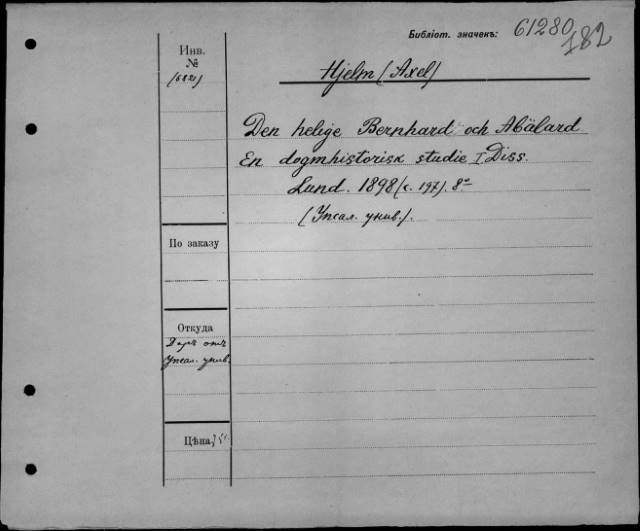 Библіот. значекъ: 61280
182
Инв.
№
Hjelm (Axel)
Den helige Bernhard och Abälard
En dogmhistorisk studie I. Diss.
Lund. 1898 (с. 197). 8º
(Упсал. унив.).
По заказу
Откуда
Даръ отъ
Упсал. унив.
Цѣна